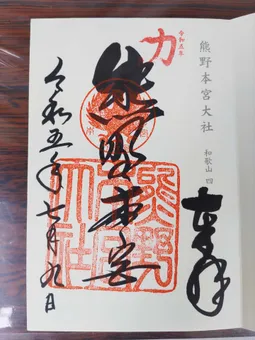 熊野本宮大社 和歌山 四
奉拝
令和五年
力
熊野本宮
熊野本宮大社
令和五年七月九日